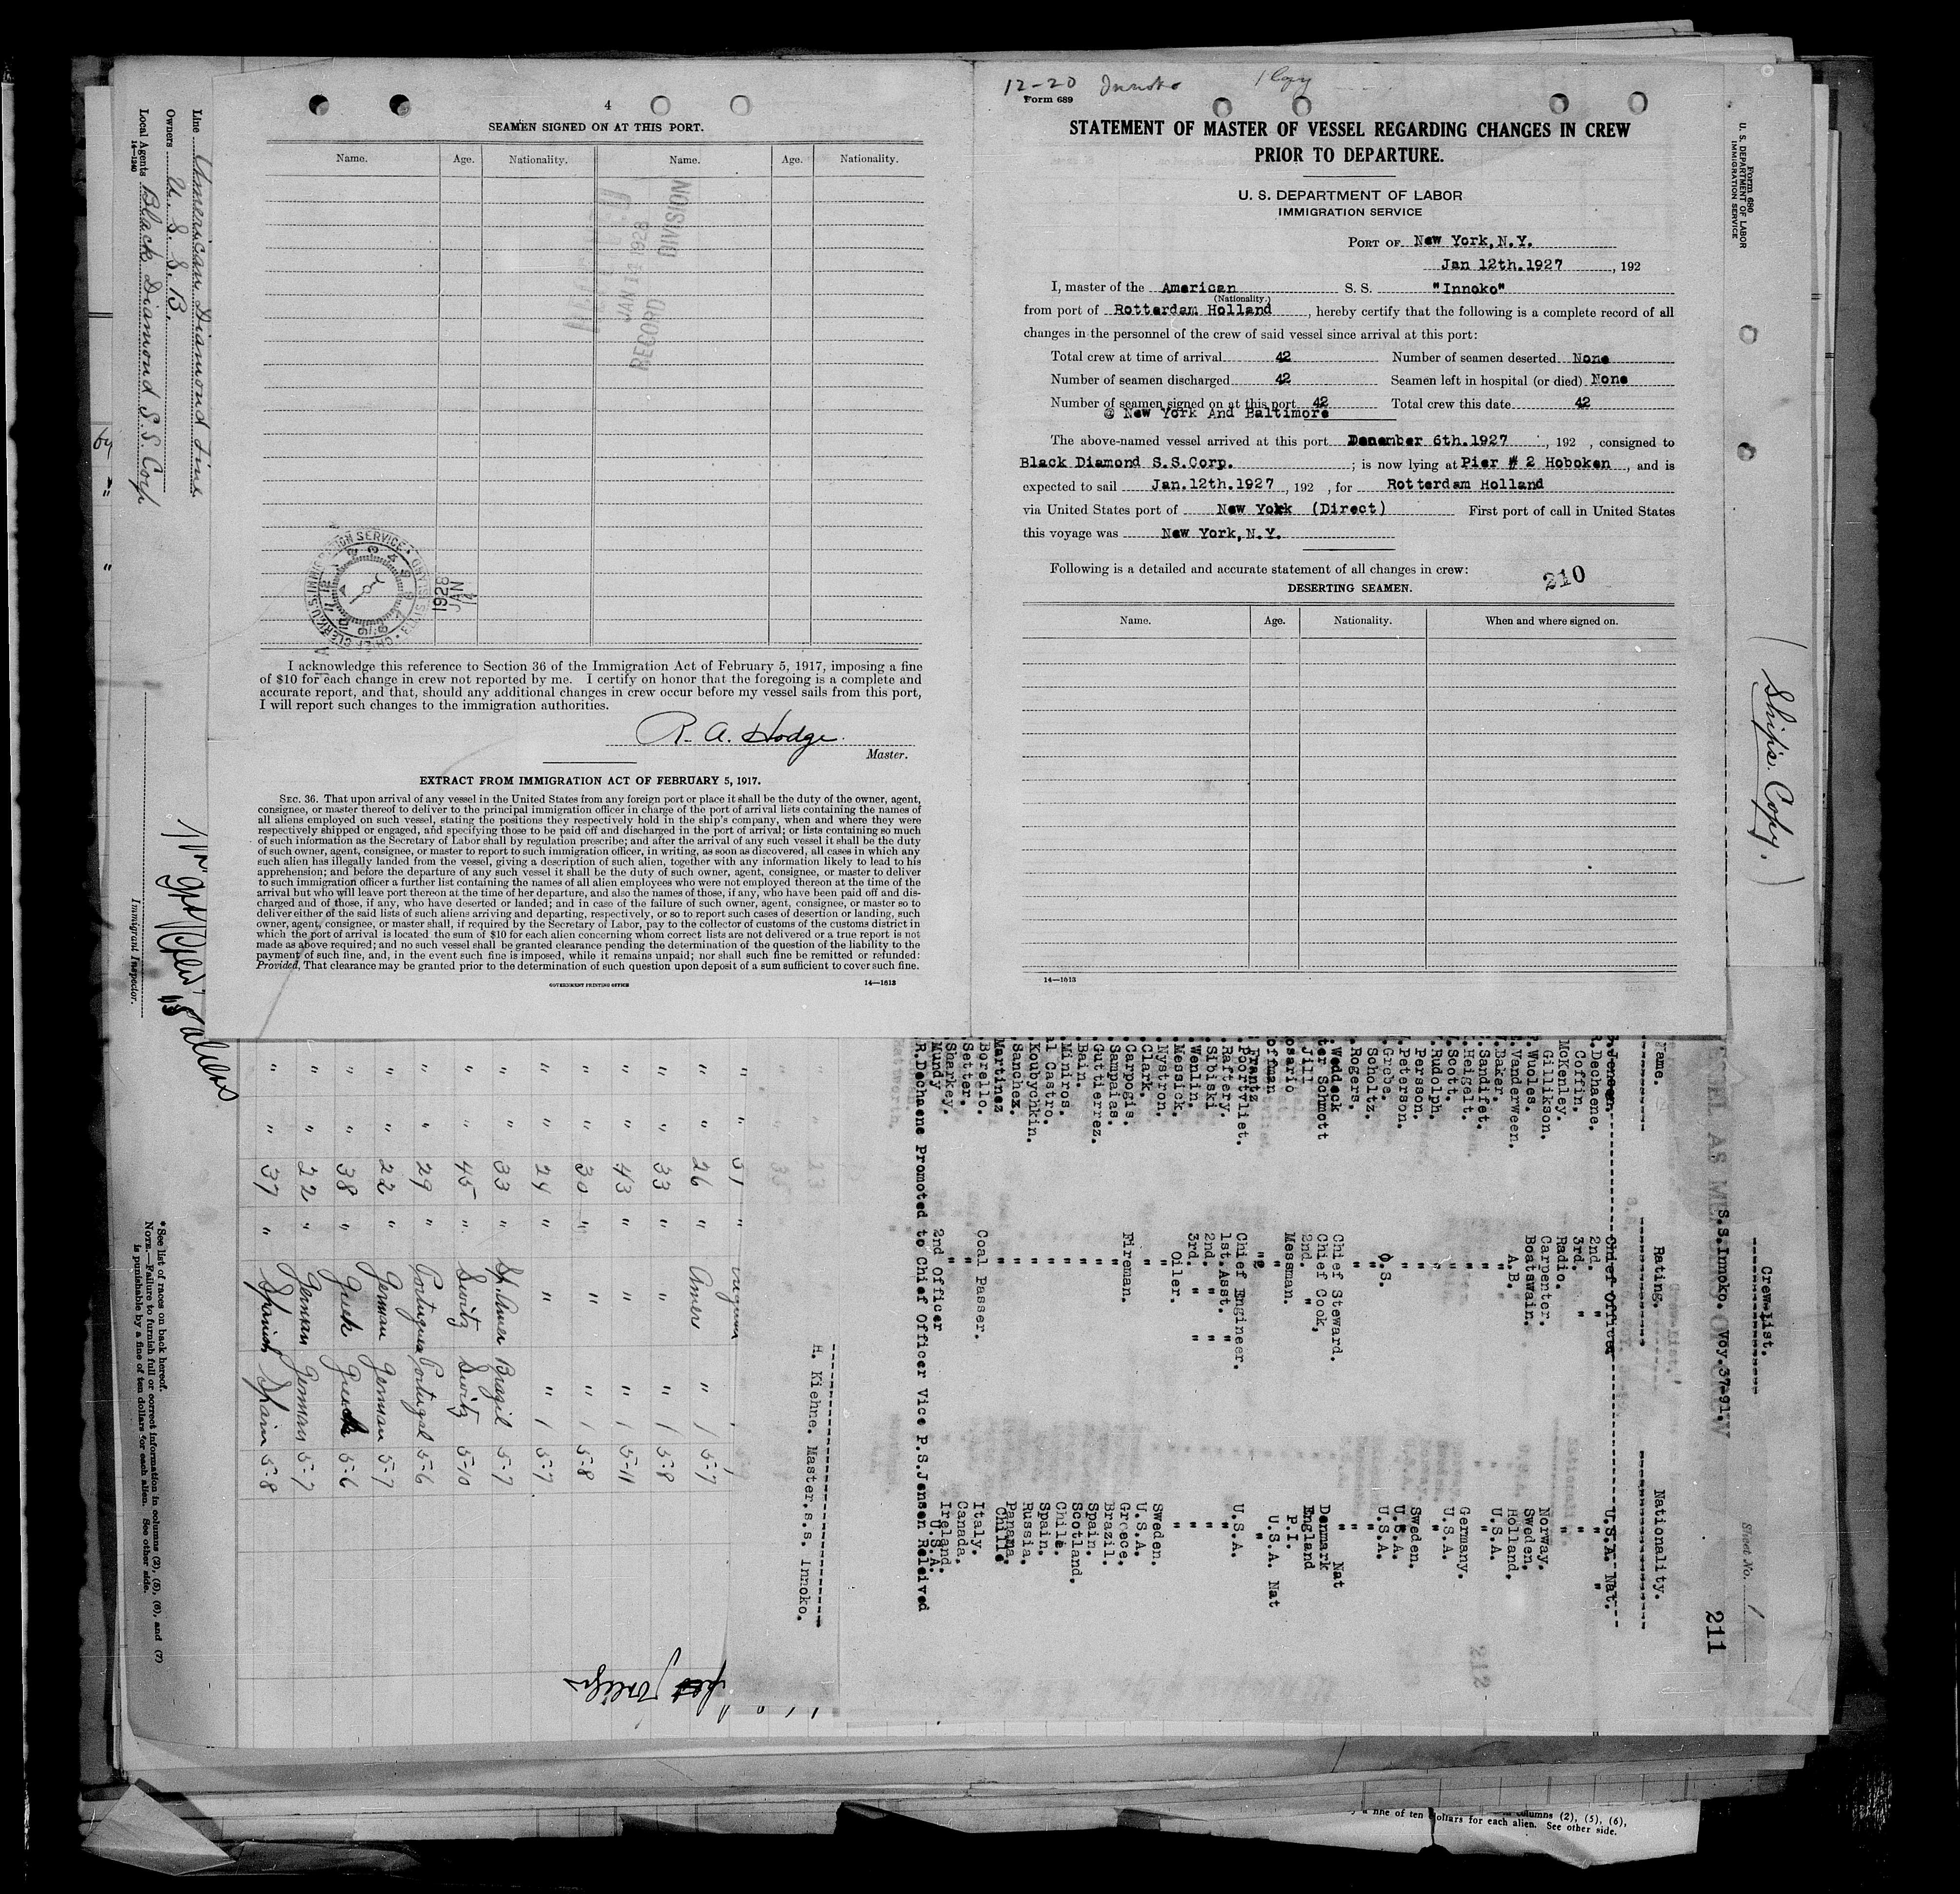 4
SEAMEN SIGNED ON AT THIS PORT.
Name. Age. Nationality. Name. Age. Nationality.
JAN 14 1928
RECORD DIVISION
CHIEF CLERK U.S. IMMIGRATION SERVICE
1928
JAN
14
I acknowledge this reference to Section 36 of the Immigration Act of February 5, 1917, imposing a fine
of $10 for each change in crew not reported by me. I certify on honor that the foregoing is a complete and
accurate report, and that, should any additional changes in crew occur before my vessel sails from this port,
I will report such changes to the immigration authorities.
R. A. Hodge
Master.
EXTRACT FROM IMMIGRATION ACT OF FEBRUARY 5, 1917.
SEC. 36. That upon arrival of any vessel in the United States from any foreign port or place it shall be the duty of the owner, agent,
consignee, or master thereof to deliver to the principal immigration officer in charge of the port of arrival lists containing the names of
all aliens employed on such vessel, stating the positions they respectively hold in the ship's company, when and where they were
respectively shipped or engaged, and specifying those to be paid off and discharged in the port of arrival; or lists containing so much
of such information as the Secretary of Labor shall by regulation prescribe; and after the arrival of any such vessel it shall be the duty
of such owner, agent, consignee, or master to report to such immigration officer, in writing, as soon as discovered, all cases in which any
such alien has illegally landed from the vessel, giving a description of such alien, together with any information likely to lead to his
apprehension; and before the departure of any such vessel it shall be the duty of such owner, agent, consignee, or master to deliver
to such immigration officer a further list containing the names of all alien employees who were not employed thereon at the time of the
arrival but who will leave port thereon at the time of her departure, and also the names of those, if any, who have been paid off and dis-
charged and of those, if any, who have deserted or landed; and in case of the failure of such owner, agent, consignee, or master so to
deliver either of the said lists of such aliens arriving and departing, respectively, or so to report such cases of desertion or landing, such
owner, agent, consignee, or master shall, if required by the Secretary of Labor, pay to the collector of customs of the customs district in
which the port of arrival is located the sum of $10 for each alien concerning whom correct lists are not delivered or a true report is not
made as above required; and no such vessel shall be granted clearance pending the determination of the question of the liability to the
payment of such fine, and, in the event such fine is imposed, while it remains unpaid; nor shall such fine be remitted or refunded:
Provided, That clearance may be granted prior to the determination of such question upon deposit of a sum sufficient to cover such fine.
GOVERNMENT PRINTING OFFICE 14—1613
12-20 Innoko 1 Copy
Form 689
STATEMENT OF MASTER OF VESSEL REGARDING CHANGES IN CREW
PRIOR TO DEPARTURE.
U. S. DEPARTMENT OF LABOR
IMMIGRATION SERVICE
PORT OF New York, N.Y.
Jan 12th.1927, 192
I, master of the American S. S. "Innoko"
(Nationality.)
from port of Rotterdam Holland, hereby certify that the following is a complete record of all
changes in the personnel of the crew of said vessel since arrival at this port:
Total crew at time of arrival 42 Number of seamen deserted None
Number of seamen discharged 42 Seamen left in hospital (or died) None
Number of seamen signed on at this port 42 Total crew this date 42
@ New York And Baltimore
The above-named vessel arrived at this port Denember 6th.1927, 192 , consigned to
Black Diamond S.S.Corp. ; is now lying at Pier # 2 Hoboken, and is
expected to sail Jan.12th.1927, 192 , for Rotterdam Holland
via United States port of New York (Direct) First port of call in United States
this voyage was New York,N.Y.
Following is a detailed and accurate statement of all changes in crew:
210
DESERTING SEAMEN.
Name. Age. Nationality. When and where signed on.
14—1613
Form 680
U. S. DEPARTMENT OF LABOR
IMMIGRATION SERVICE
(Ship's Copy.)
Line American Diamond Line
Owners U. S. S. B.
Local Agents Black Diamond S. S. Corp
14—1240
Immigrant Inspector.
*See list of races on back hereof.
NOTE.—Failure to furnish full or correct information in columns (2), (5), (6), and (7)
is punishable by a fine of ten dollars for each alien. See other side.
Sheet No. 1
211
Crew List.
S.S.Innoko. Voy.37-91.
Name. Rating. Nationality.
.Jensen. Chief Officer U.S.A. Nat.
.Dechaene. 2nd. " " "
Coffin. 3rd. " "
McKenley. Radio. "
Gillikson. Carpenter. Norway.
Wuoles. Boatswain. Sweden.
Vanderween. A.B. Holland.
Baker. " U.S.A.
Sandifet. " "
Heigelt. " Germany.
Scott. " U.S.A.
Rudolph. " "
Persson. " Sweden.
Peterson. " U.S.A.
Grobe. O.S. U.S.A.
Scholtz. " "
Rogers. " "
Weddeck Chief Steward. " Nat
ter Schmott Chief Cook, Denmark
Jill 2nd. " England
osario Messman. P.I.
offman " U.S.A. Nat
Frantz "
Poortvliet. Chief Engineer. U.S.A.
Raftery. 1st.Asst. " "
Sibiski 2nd. " " "
Wenlin. 3rd. " " "
Messick. Oiler. "
Nystron. " Sweden.
Clark. " U.S.A.
Carpogis. Fireman. Greece.
Sampaias. " Brazil.
Guttierrez. " Spain.
Bain. " Scotland.
Miniros. " Chile.
al Castro. " Spain.
Koubychkin. " Russia.
Sanchez. " Panama.
Martinez " Chile
Borello. Coal Passer. Italy.
Setter. " Canada.
Sharkey. " Ireland.
Mundy 2nd Officer U.S.A.
R.Dechaene Promoted to Chief Officer Vice P.S.Jensen Releived
H. Kiehne. Master.s.s. Innoko.
" " 26 " Amers " 1 5-7
" " 33 " " " 1 5-8
" " 43 " " " 1 5-11
" " 30 " " " 1 5-8
" " 24 " " " 1 5-7
" " 33 " Sp. Amer Brazil 5-7
" " 45 " Switz Switz 5-10
" " 29 " Portuguese Portugal 5-6
" " 22 " German German 5-7
" " 38 " Greek Greek 5-6
" " 22 " German German 5-7
" " 37 " Spanish Spain 5-8
columns (2), (5), (6),
a fine of ten dollars for each alien. See other side.